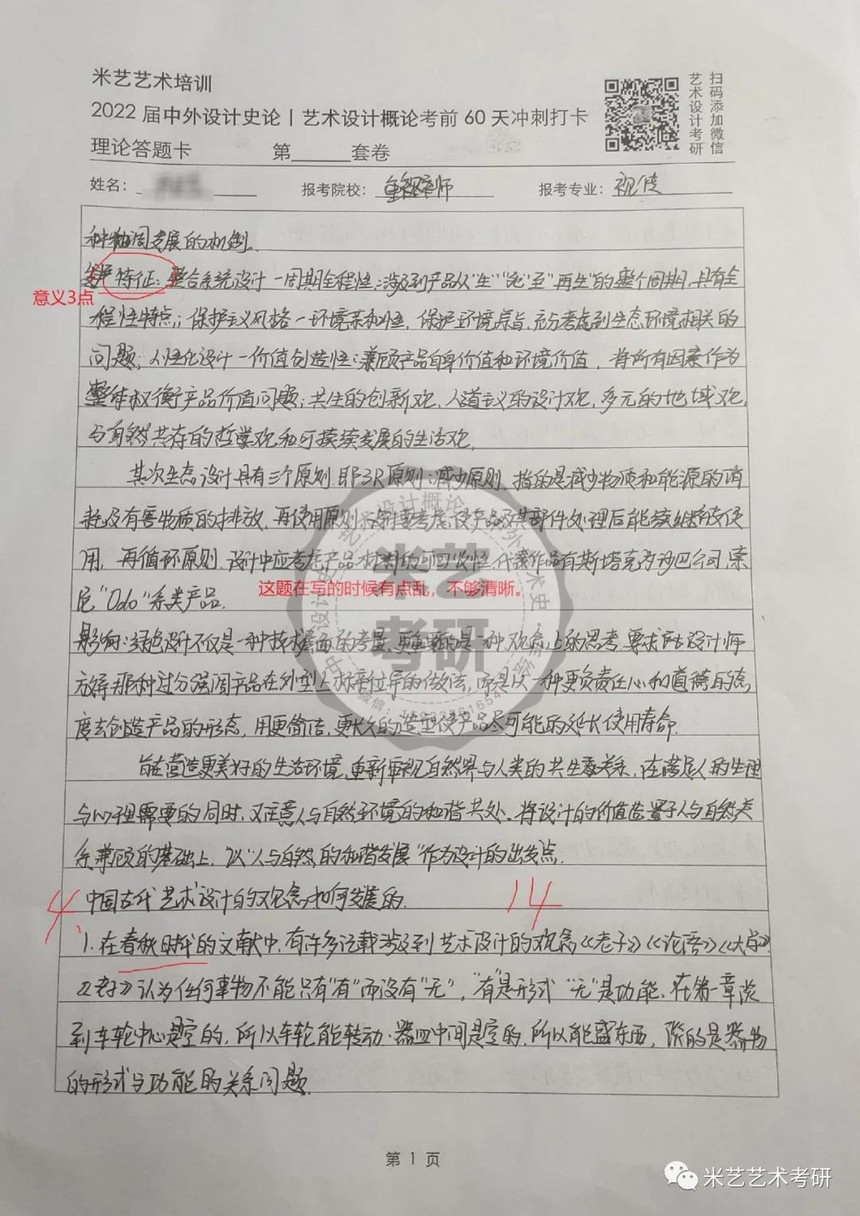 米艺艺术培训
2022 届中外设计史论 | 艺术设计概论考前 60 天冲刺打卡
理论答题卡 第 套卷
扫码添加微信
艺术设计考研
姓名： 报考院校： 重视师 报考专业：视传
种协调发展的机制。
特征：整合系统设计—周期全程性：涉及到产品从“生”“死”至“再生”的整个周期，具有全
意义3点
程性特点；保护主义风格—环境亲和性，保护环境宗旨，充分考虑到生态环境相关的
问题；人性化设计—价值创造性：兼顾产品自身价值和环境价值，将所有因素作为
整体权衡产品价值问题；共生的创新观，人道主义的设计观，多元的地域观，
与自然共存的哲学观和可持续发展的生活观。
其次生态设计具有三个原则，即3R原则：减少原则，指的是减少物质和能源的消
耗及有害物质的排放，再使用原则，设计要考虑使产品及其部件处理后能继续被使
用，再循环原则，设计中应考虑产品材料的回收性，代表作品有斯塔克为沙巴公司，
尼“Odo”系类产品．
这题在写的时候有点乱，不够清晰。
影响：绿色设计不仅是一种技术层面的考量，更重要的是一种观念上的思考，要求设计师
放弃那种过分强调产品在外型上标新立异的做法，而是以一种更负责任心和道德的态
度去创造产品的形态，用更简洁，更长久的造型使产品尽可能的延长使用寿命．
能营造更美好的生活环境，重新审视自然界与人类的共生关系，在满足人的生理
与心理需要的同时，又注意人与自然环境的和谐共处。将设计的价值置于人与自然关
系兼顾的基础上，以“人与自然的和谐发展”作为设计的出发点．
4、中国古代艺术设计的观念如何发展的． 14
1．在春秋时代的文献中，有许多记载涉及到艺术设计的观念《老子》《论语》《大学》
《老子》认为任何事物不能只有“有”而没有“无”，“有”是形式“无”是功能．在第一章谈
到车轮中心是空的，所以车轮能转动．器皿中间是空的，所以能盛东西，谈的是器物
的形式与功能的关系问题．
米艺
考研
第 1 页
米艺艺术考研